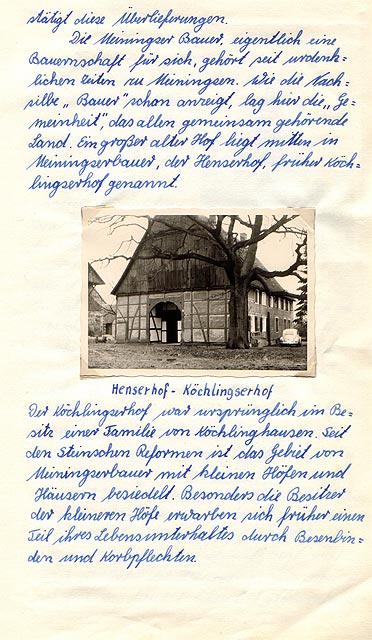 stätigt diese Überlieferungen.
Die Meiningser Bauer, eigentlich eine
Bauernschaft für sich, gehört seit urdenk=
lichen Zeiten zu Meiningsen. Wie die Nach=
silbe „Bauer" schon anzeigt, lag hier die „Ge=
meinheit", das allen gemeinsam gehörende
Land. Ein großer alter Hof liegt mitten in
Meiningserbauer, der Henserhof, früher Köch=
lingserhof genannt.
Henserhof - Köchlingserhof
Der Köchlingserhof war ursprünglich im Be=
sitz einer Familie von Köchlinghausen. Seit
den Steinschen Reformen ist das Gebiet von
Meiningserbauer mit kleinen Höfen und
Häusern besiedelt. Besonders die Besitzer
der kleineren Höfe erwarben sich früher einen
Teil ihres Lebensunterhaltes durch Besenbin=
den und Korbpflechten.